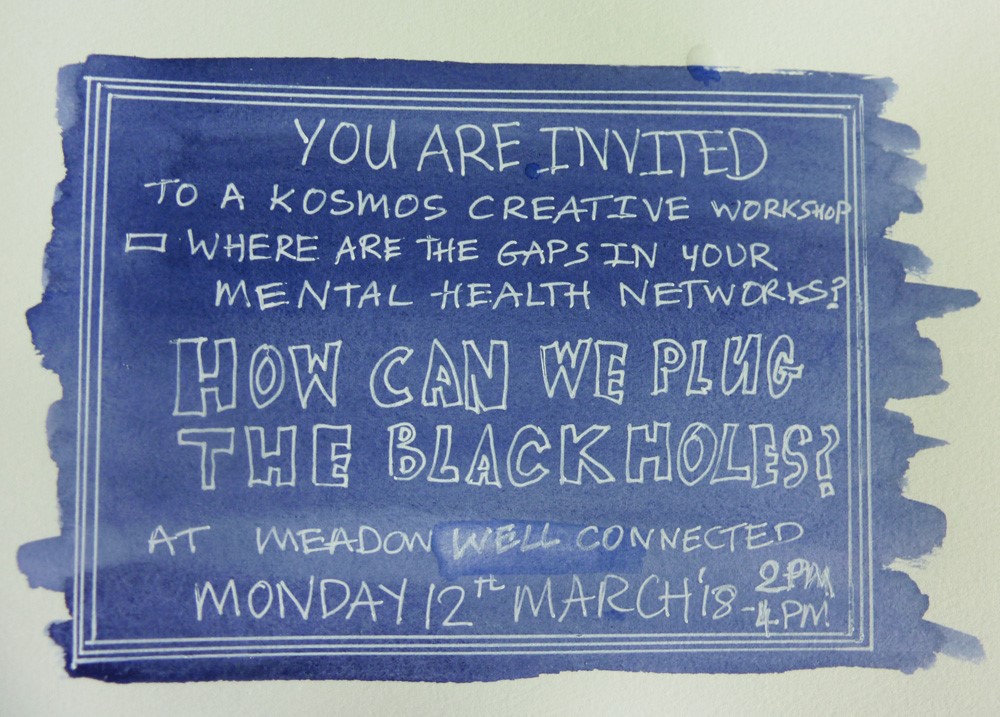 YOU ARE INVITED
TO A KOSMOS CREATIVE WORKSHOP
WHERE ARE THE GAPS IN YOUR
MENTAL HEALTH NETWORKS?
HOW CAN WE PLUG
THE BLACK HOLES?
AT MEADOW WELL CONNECTED
MONDAY 12th MARCH '18 2PM
-4PM